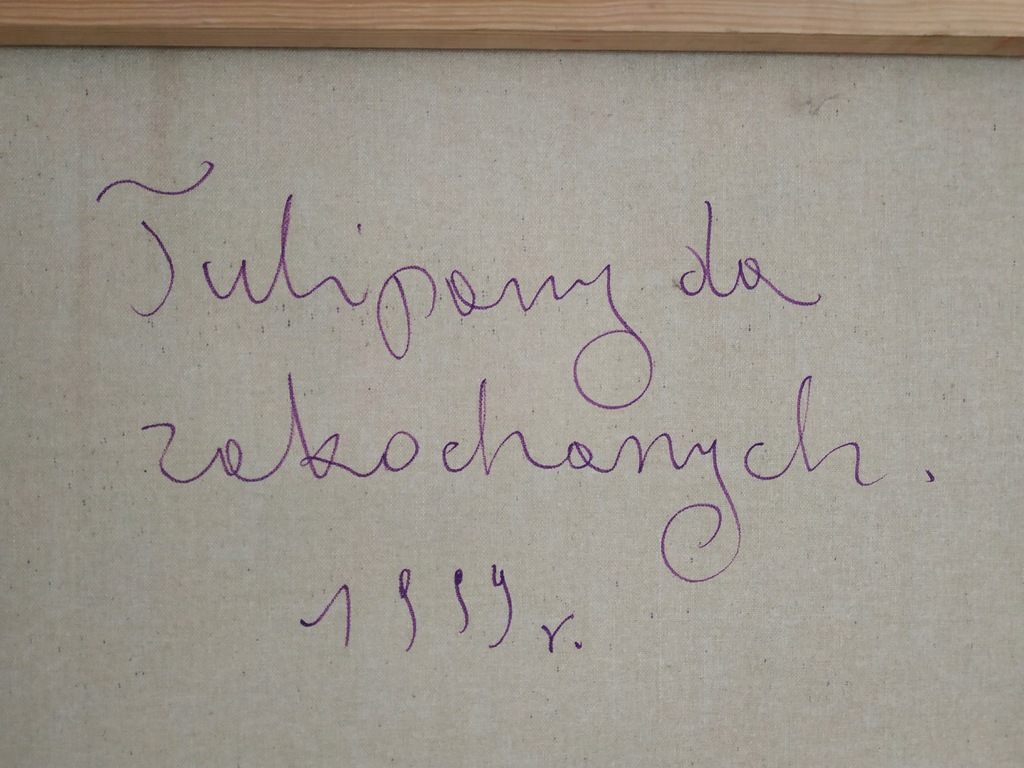 Tulipany da
zakochanych.
1999 r.